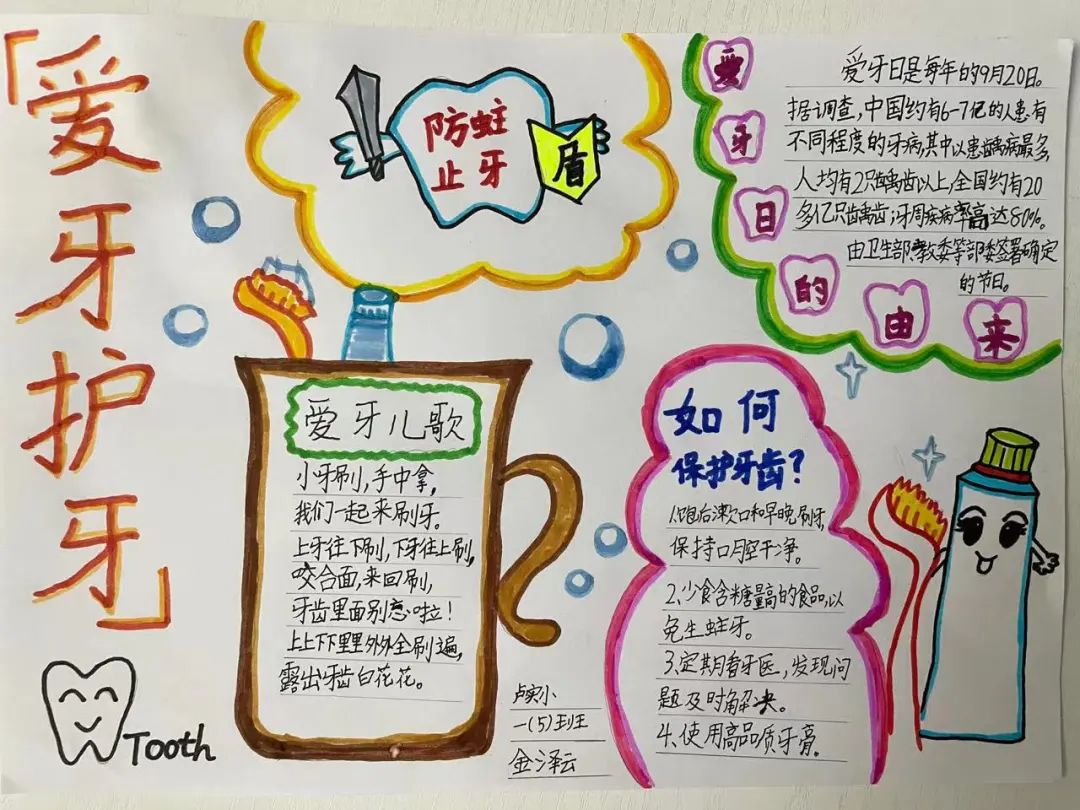 「爱牙护牙」
防蛀
止牙
盾
爱牙日的由来
爱牙日是每年的9月20日。
据调查,中国约有6-7亿的人患有
不同程度的牙病,其中以患龋病最多,
人均有2只龋齿以上,全国约有20
多亿只龋齿;牙周疾病率高达80%。
由卫生部、教委等部委签署确定
的节日。
爱牙儿歌
小牙刷,手中拿,
我们一起来刷牙。
上牙往下刷,下牙往上刷,
咬合面,来回刷,
牙齿里面别忘啦!
上上下下里里外外全刷遍,
露出牙齿白花花。
如何
保护牙齿?
1、饭后漱口和早晚刷牙,
保持口腔干净。
2、少食含糖量高的食品,以
免生蛀牙。
3、定期看牙医,发现问
题及时解决。
4、使用高品质牙膏。
卢实小
一(5)班
金泽云
Tooth